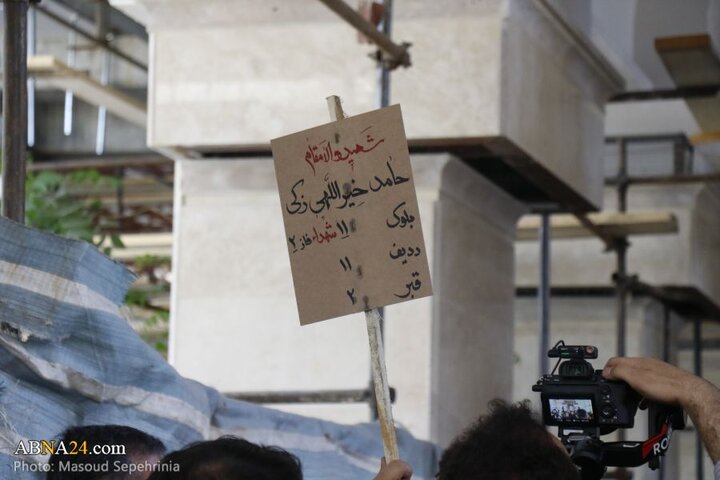 شهید والامقام
حامد خیراللهی زکی
بلوک ۱۱ شهداء فاز ۲
ردیف ۱۱
قبر ۲
RONIN
ABNA24.com
Photo: Masoud Sepehrinia